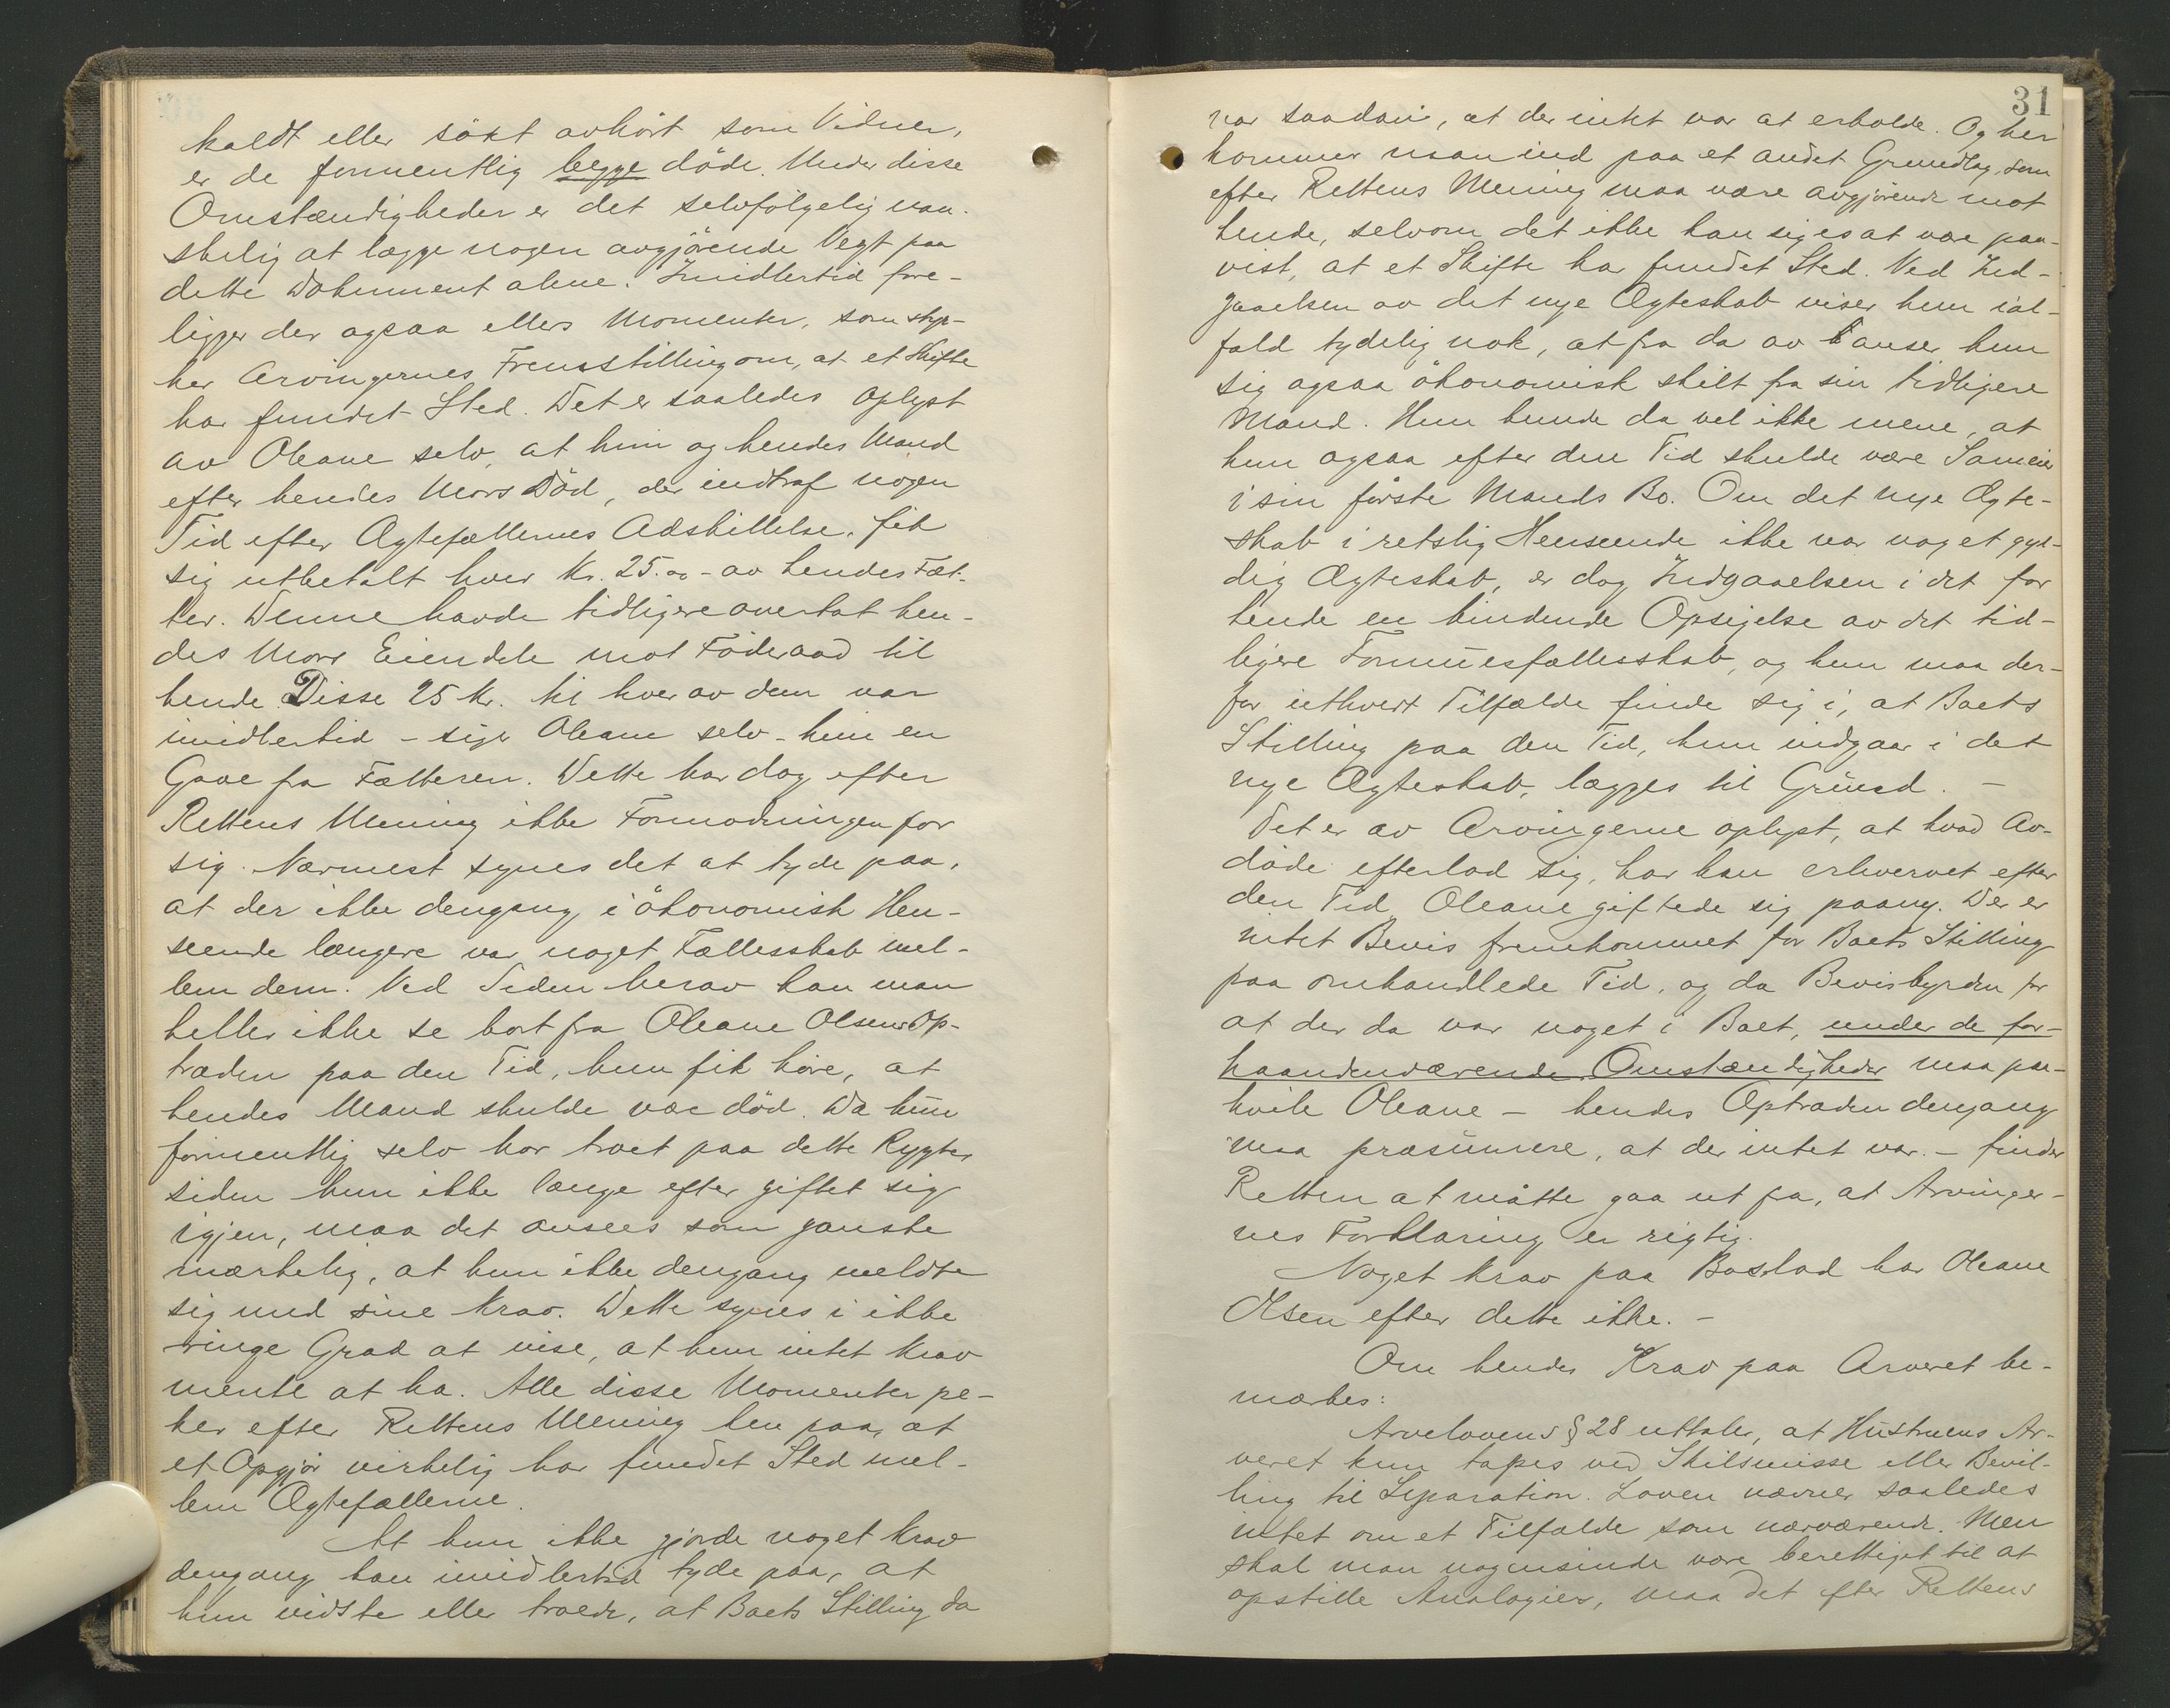 kaldt eller sökt avhört som Vidner,
er de formentlig begge döde. Under disse
Omstændigheder er det selvfölgelig van-
skelig at lægge nogen avgjörende Vegt paa
dette Dokument alene. Imidlertid fore-
ligger der ogsaa ellers Momenter, som styr-
ker Arvingernes Fremstilling om, at et Skifte
har fundet Sted. Det er saaledes oplyst
av Oleane selv, at hun og hendes Mand
efter hendes Mors Död, der indtraf nogen
Tid efter Ægtefællernes Adskillelse, fik
sig utbetalt hver Kr. 25.00 - av hendes Fæt-
ter. Denne havde tidligere overtat hen-
des Mors Eiendele mot Föderaad til
hende. Disse 25 Kr. til hver av dem var
imidlertid - siger Oleane selv - kun en
Gave fra Fætteren. Dette har dog efter
Rettens Mening ikke Formodningen for
sig. Nærmest synes det at tyde paa,
at der ikke dengang i ökonomisk Hen-
seende længere var noget Fællesskab mel-
lem dem. Ved Siden herav kan man
heller ikke se bort fra Oleane Olsens Op-
træden paa den Tid, hun fik höre, at
hendes Mand skulde være död. Da hun
formentlig selv har troet paa dette Rygte,
siden hun ikke længe efter giftet sig
igjen, maa det ansees som ganske
mærkelig, at hun ikke dengang meldte
sig med sine Krav. Dette synes i ikke
ringe Grad at vise, at hun intet Krav
mente at ha. Alle disse Momenter pe-
ker efter Rettens Mening hen paa, at
et Opgjör virkelig har fundet Sted mel-
lem Ægtefællerne.
At hun ikke gjorde noget Krav
dengang kan imidlertid tyde paa, at
hun vidste eller troede, at Boets Stilling da
31
var saadan, at der intet var at erholde. Og her
kommer man ind paa et andet Grundlag, som
efter Rettens Mening maa være avgjörende mot
hende, selvom det ikke kan siges at være paa-
vist, at et Skifte har fundet Sted. Ved Ind-
gaaelsen av det nye Ægteskab viser hun ial-
fald tydelig nok, at fra da av anser hun
sig ogsaa ökonomisk skilt fra sin tidligere
Mand. Hun kunde da vel ikke mene, at
hun ogsaa efter den Tid skulde være Sameier
i sin förste Mands Bo. Om det nye Ægte-
skab i retslig Henseende ikke var noget gyl-
dig Ægteskab, er dog Indgaaelsen i det for
hende en bindende Opsigelse av det tid-
ligere Formuesfællesskab, og hun maa der-
for ethvert Tilfælde finde sig i, at Boets
Stilling paa den Tid, hun indgaar i det
nye Ægteskab, lægges til Grund. -
Det er av Arvingerne oplyst, at hvad Av-
döde efterlod sig, har han erhvervet efter
den Tid Oleane giftede sig paany. Der er
intet Bevis fremkommet for Boets Stilling
paa omhandlede Tid, og da Bevisbyrden for
at der da var noget i Boet, under de for-
haandenværende Omstændigheder maa paa-
hvile Oleane - hendes Optræden dengang
maa præsumere, at der intet var. - finder
Retten at måtte gaa ut fra, at Arvinger-
nes Forklaring er rigtig.
Noget Krav paa Boslod har Oleane
Olsen efter dette ikke. -
Om hendes Krav paa Arveret be-
mærkes:
Arvelovens § 28 uttaler, at Hustruens Ar-
veret kun tapes ved Skilsmisse eller Bevil-
ling til Separation. Loven nævner saaledes
intet om et Tilfælde som nærværende. Men
skal man nogensinde være berettiget til at
opstille Analogier, maa det efter Rettens